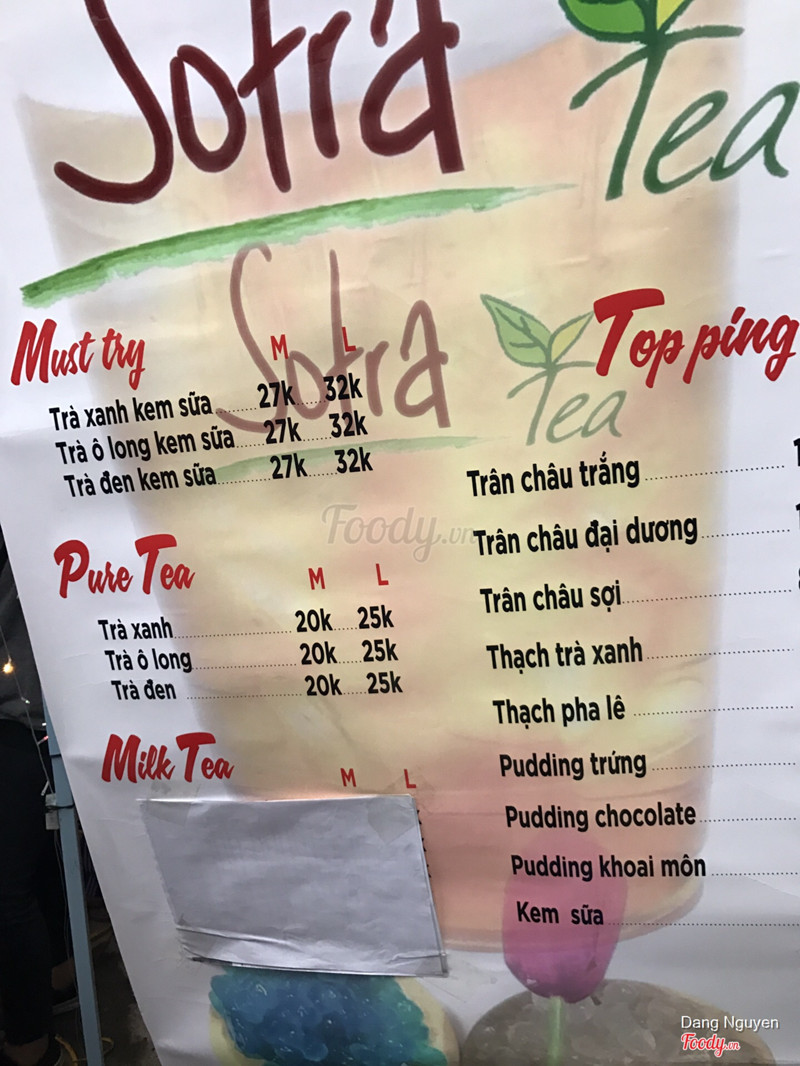 Sotra Tea
Sotra Tea
Must try M L
Trà xanh kem sữa ........ 27k ..... 32k
Trà ô long kem sữa ..... 27k ..... 32k
Trà đen kem sữa ........ 27k ..... 32k
Pure Tea M L
Trà xanh ........ 20k ..... 25k
Trà ô long ........ 20k ..... 25k
Trà đen ........ 20k ..... 25k
Milk Tea M L
Topping
Trân châu trắng
Trân châu đại dương
Trân châu sợi
Thạch trà xanh
Thạch pha lê
Pudding trứng
Pudding chocolate
Pudding khoai môn
Kem sữa
Foody.vn
Dang Nguyen
Foody.vn